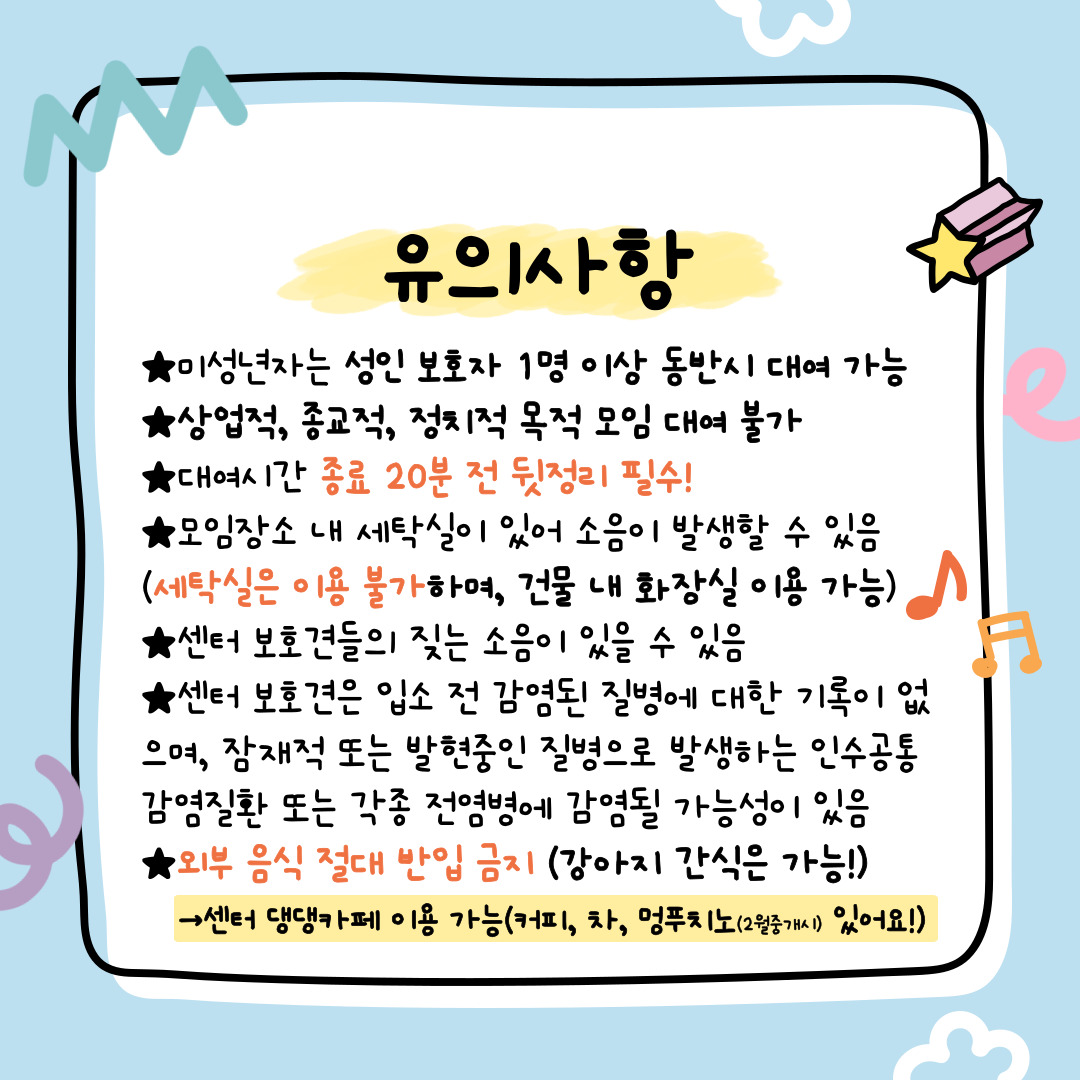 유의사항
★미성년자는 성인 보호자 1명 이상 동반시 대여 가능
★상업적, 종교적, 정치적 목적 모임 대여 불가
★대여시간 종료 20분 전 뒷정리 필수!
★모임장소 내 세탁실이 있어 소음이 발생할 수 있음
(세탁실은 이용 불가하며, 건물 내 화장실 이용 가능)
★센터 보호견들의 짖는 소음이 있을 수 있음
★센터 보호견은 입소 전 감염된 질병에 대한 기록이 없
으며, 잠재적 또는 발현중인 질병으로 발생하는 인수공통
감염질환 또는 각종 전염병에 감염될 가능성이 있음
★외부 음식 절대 반입 금지 (강아지 간식은 가능!)
→센터 댕댕카페 이용 가능(커피, 차, 멍푸치노(2월중개시) 있어요!)